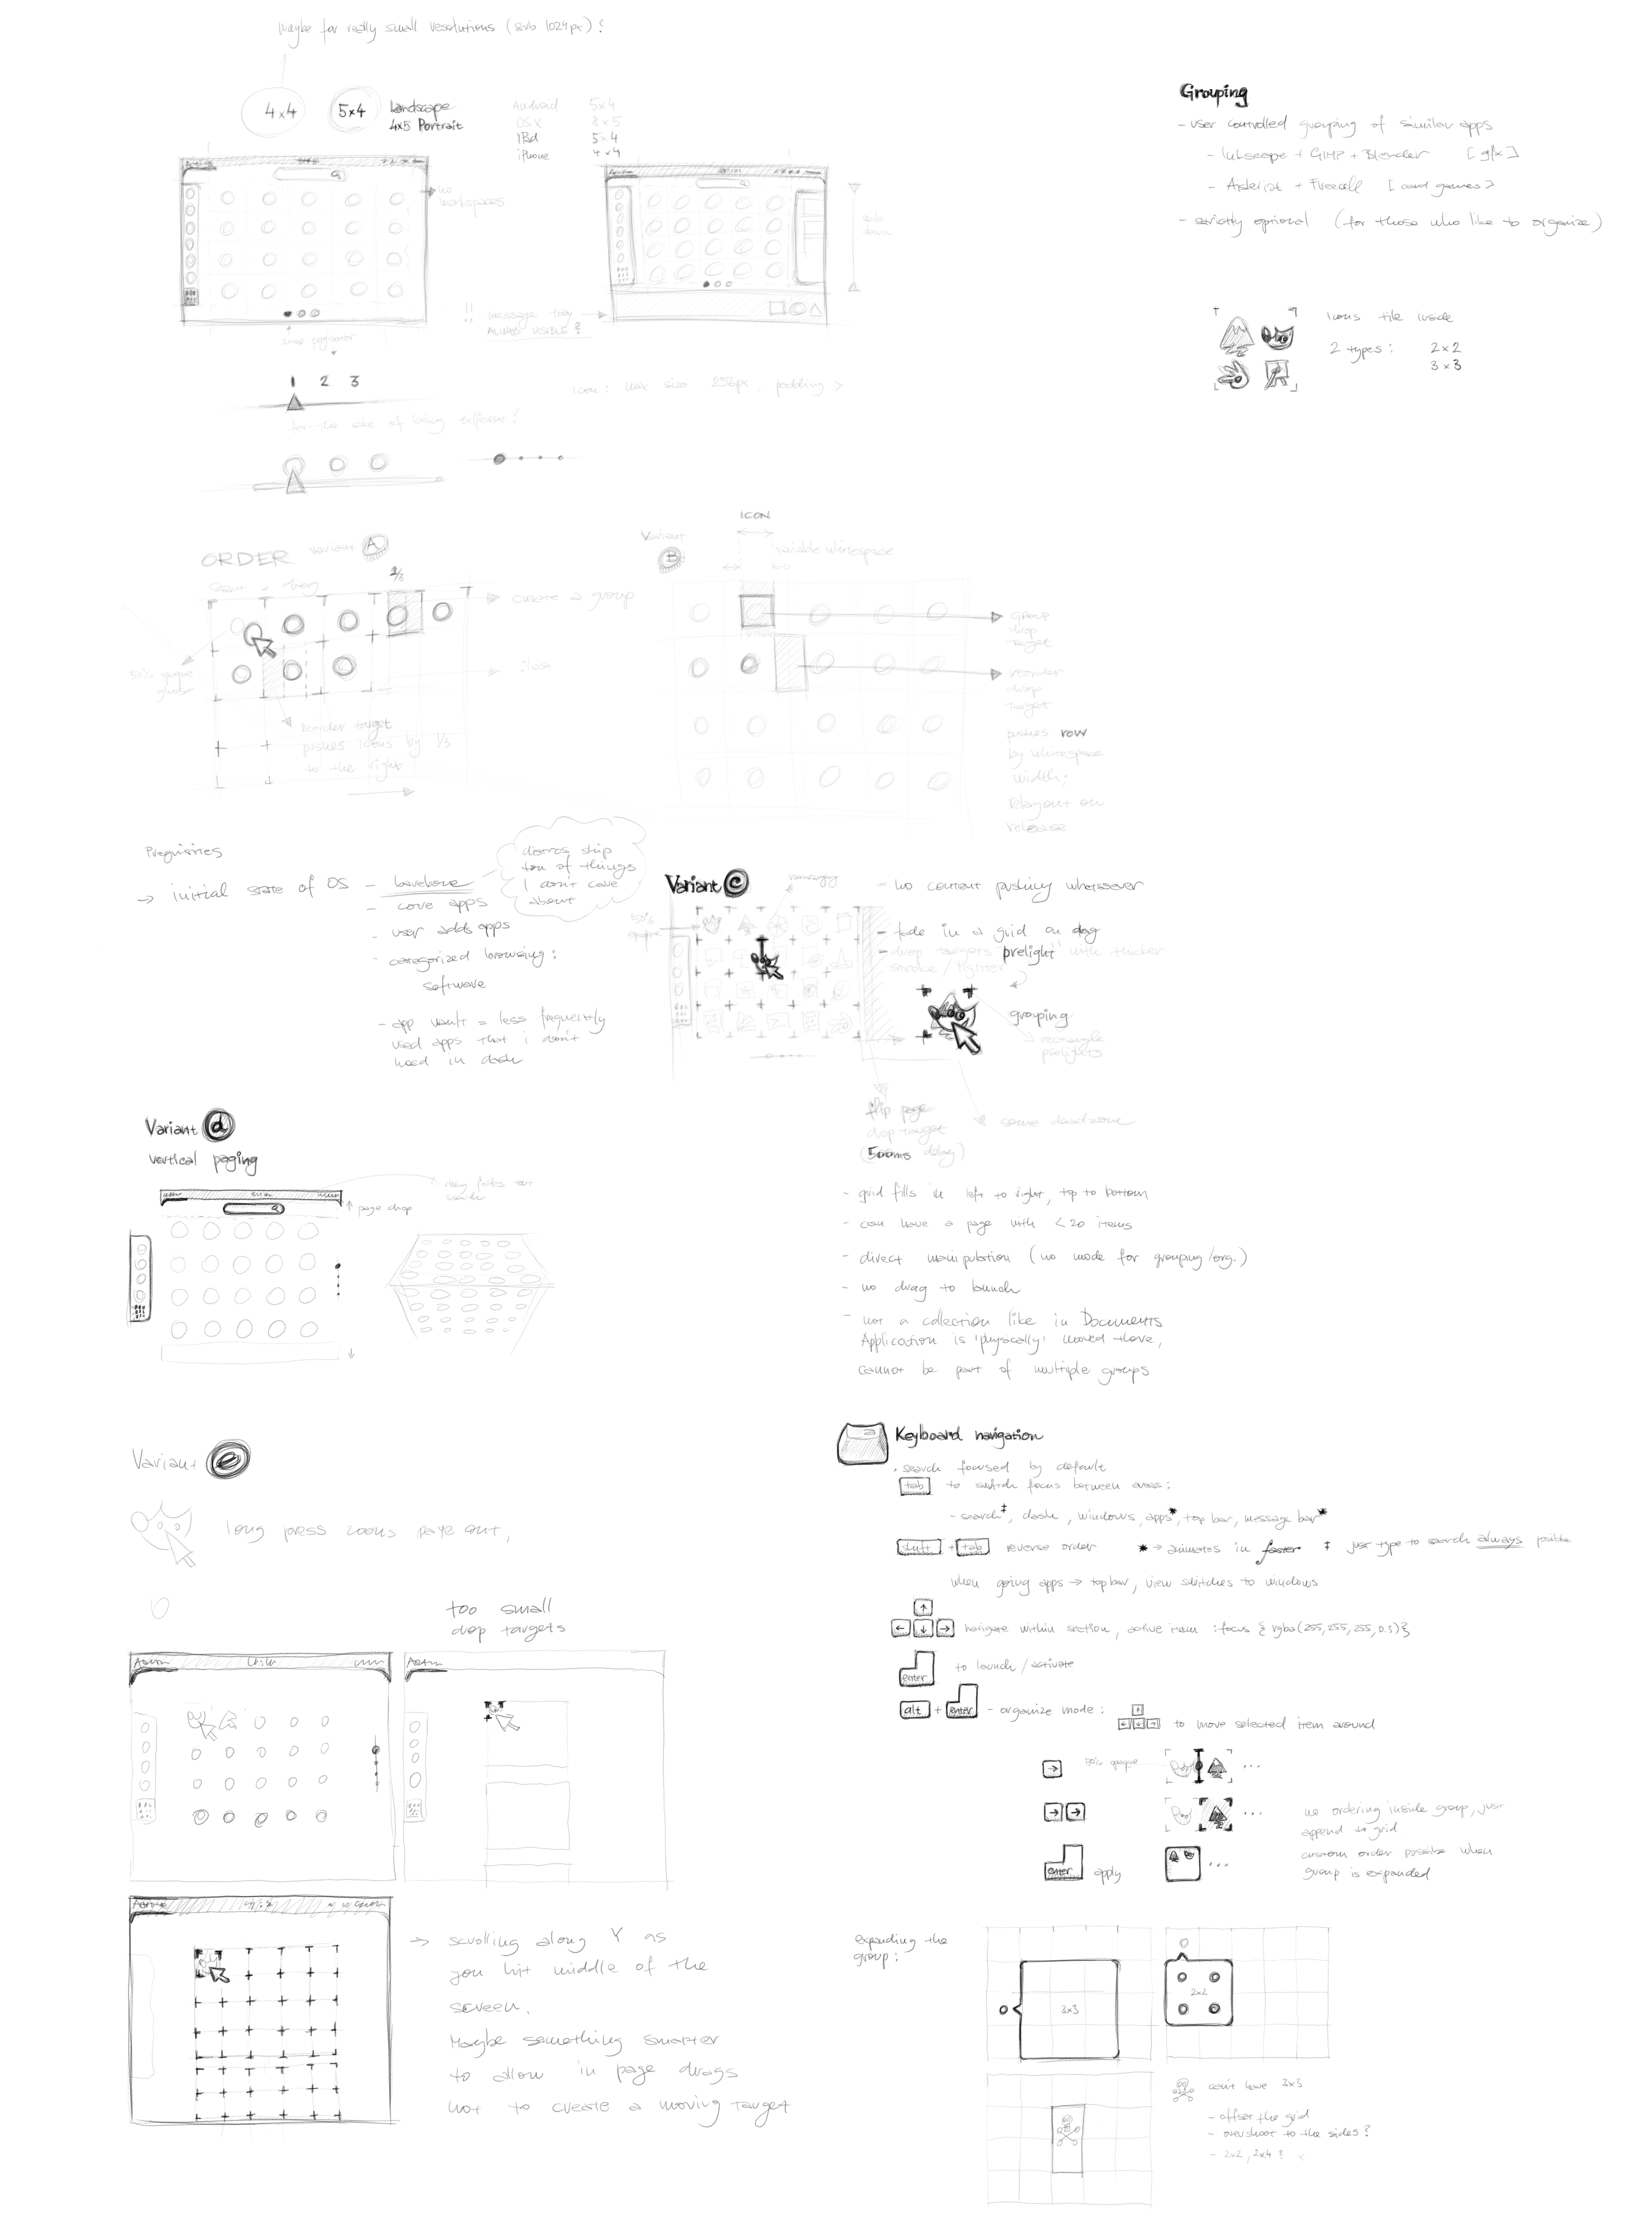 Maybe for really small resolutions (sub 1024px)?
4x4
5x4
Landscape
4x5 Portrait
Android 5x4
OSX 8x5
iPad 5x4
iPhone 4x4
no
workspaces
!! message tray
ALWAYS VISIBLE?
1 2 3
icon: max size 256px, padding >
for the sake of being different?
Grouping
- user controlled grouping of similar apps
- Inkscape + GIMP + Blender [gfx]
- Aisleriot + Freecell [card games]
- strictly optional (for those who like to organize)
Icons tile inside
2 types: 2x2
3x3
ORDER variant A
start a drag
create a group
50% opaque
reorder target
pushes icons by 1/3
to the right
Variant
B
ICON
variable whitespace
group
drop
target
reorder
drop
target
pushes row
by whitespace
width;
relayout on
release
→ initial state of OS - barebone
- core apps
- user adds apps
- categorized browsing:
software
- app vault = less frequently
used apps that i don't
need in dash
distros ship
ton of things
I don't care
about
Variant C
rearranging
50%
opaque
- no content pushing whatsoever
- fade in a grid on drag
- drop targets "prelight" with thicker
stroke / lighter
grouping
rectangle
prelights
flip page
drop target
(500ms delay)
some deadzone
Variant d
vertical paging
drag fades out
search
page drop
- grid fills in left to right, top to bottom
- can have a page with < 20 items
- direct manipulation (no mode for grouping/org.)
- no drag to launch
- not a collection like in Documents
Application is 'physically' moved there,
cannot be part of multiple groups
Variant e
long press zooms page out,
too small
drop targets
→ scrolling along Y as
you hit middle of the
screen.
Maybe something smarter
to allow in page drags
not to create a moving target
Keyboard navigation
. search focused by default
tab to switch focus between areas:
- search‡, dash, windows, apps*, top bar, message bar*
shift + tab reverse order * → animates in faster ‡ just type to search always possible
when going apps → topbar, view switches to windows
↑
← ↓ → navigate within section, active item :focus { rgba(255,255,255,0.3)}
enter to launch / activate
alt + enter - organize mode: ↑
← ↓ → to move selected item around
→ 50% opaque ...
→ → ...
no ordering inside group, just
append to grid.
custom order possible when
group is expanded
enter apply ...
expanding the
group:
3x3
2x2
can't have 3x3
- offset the grid
- overshoot to the sides?
- 2x2, 2x4?